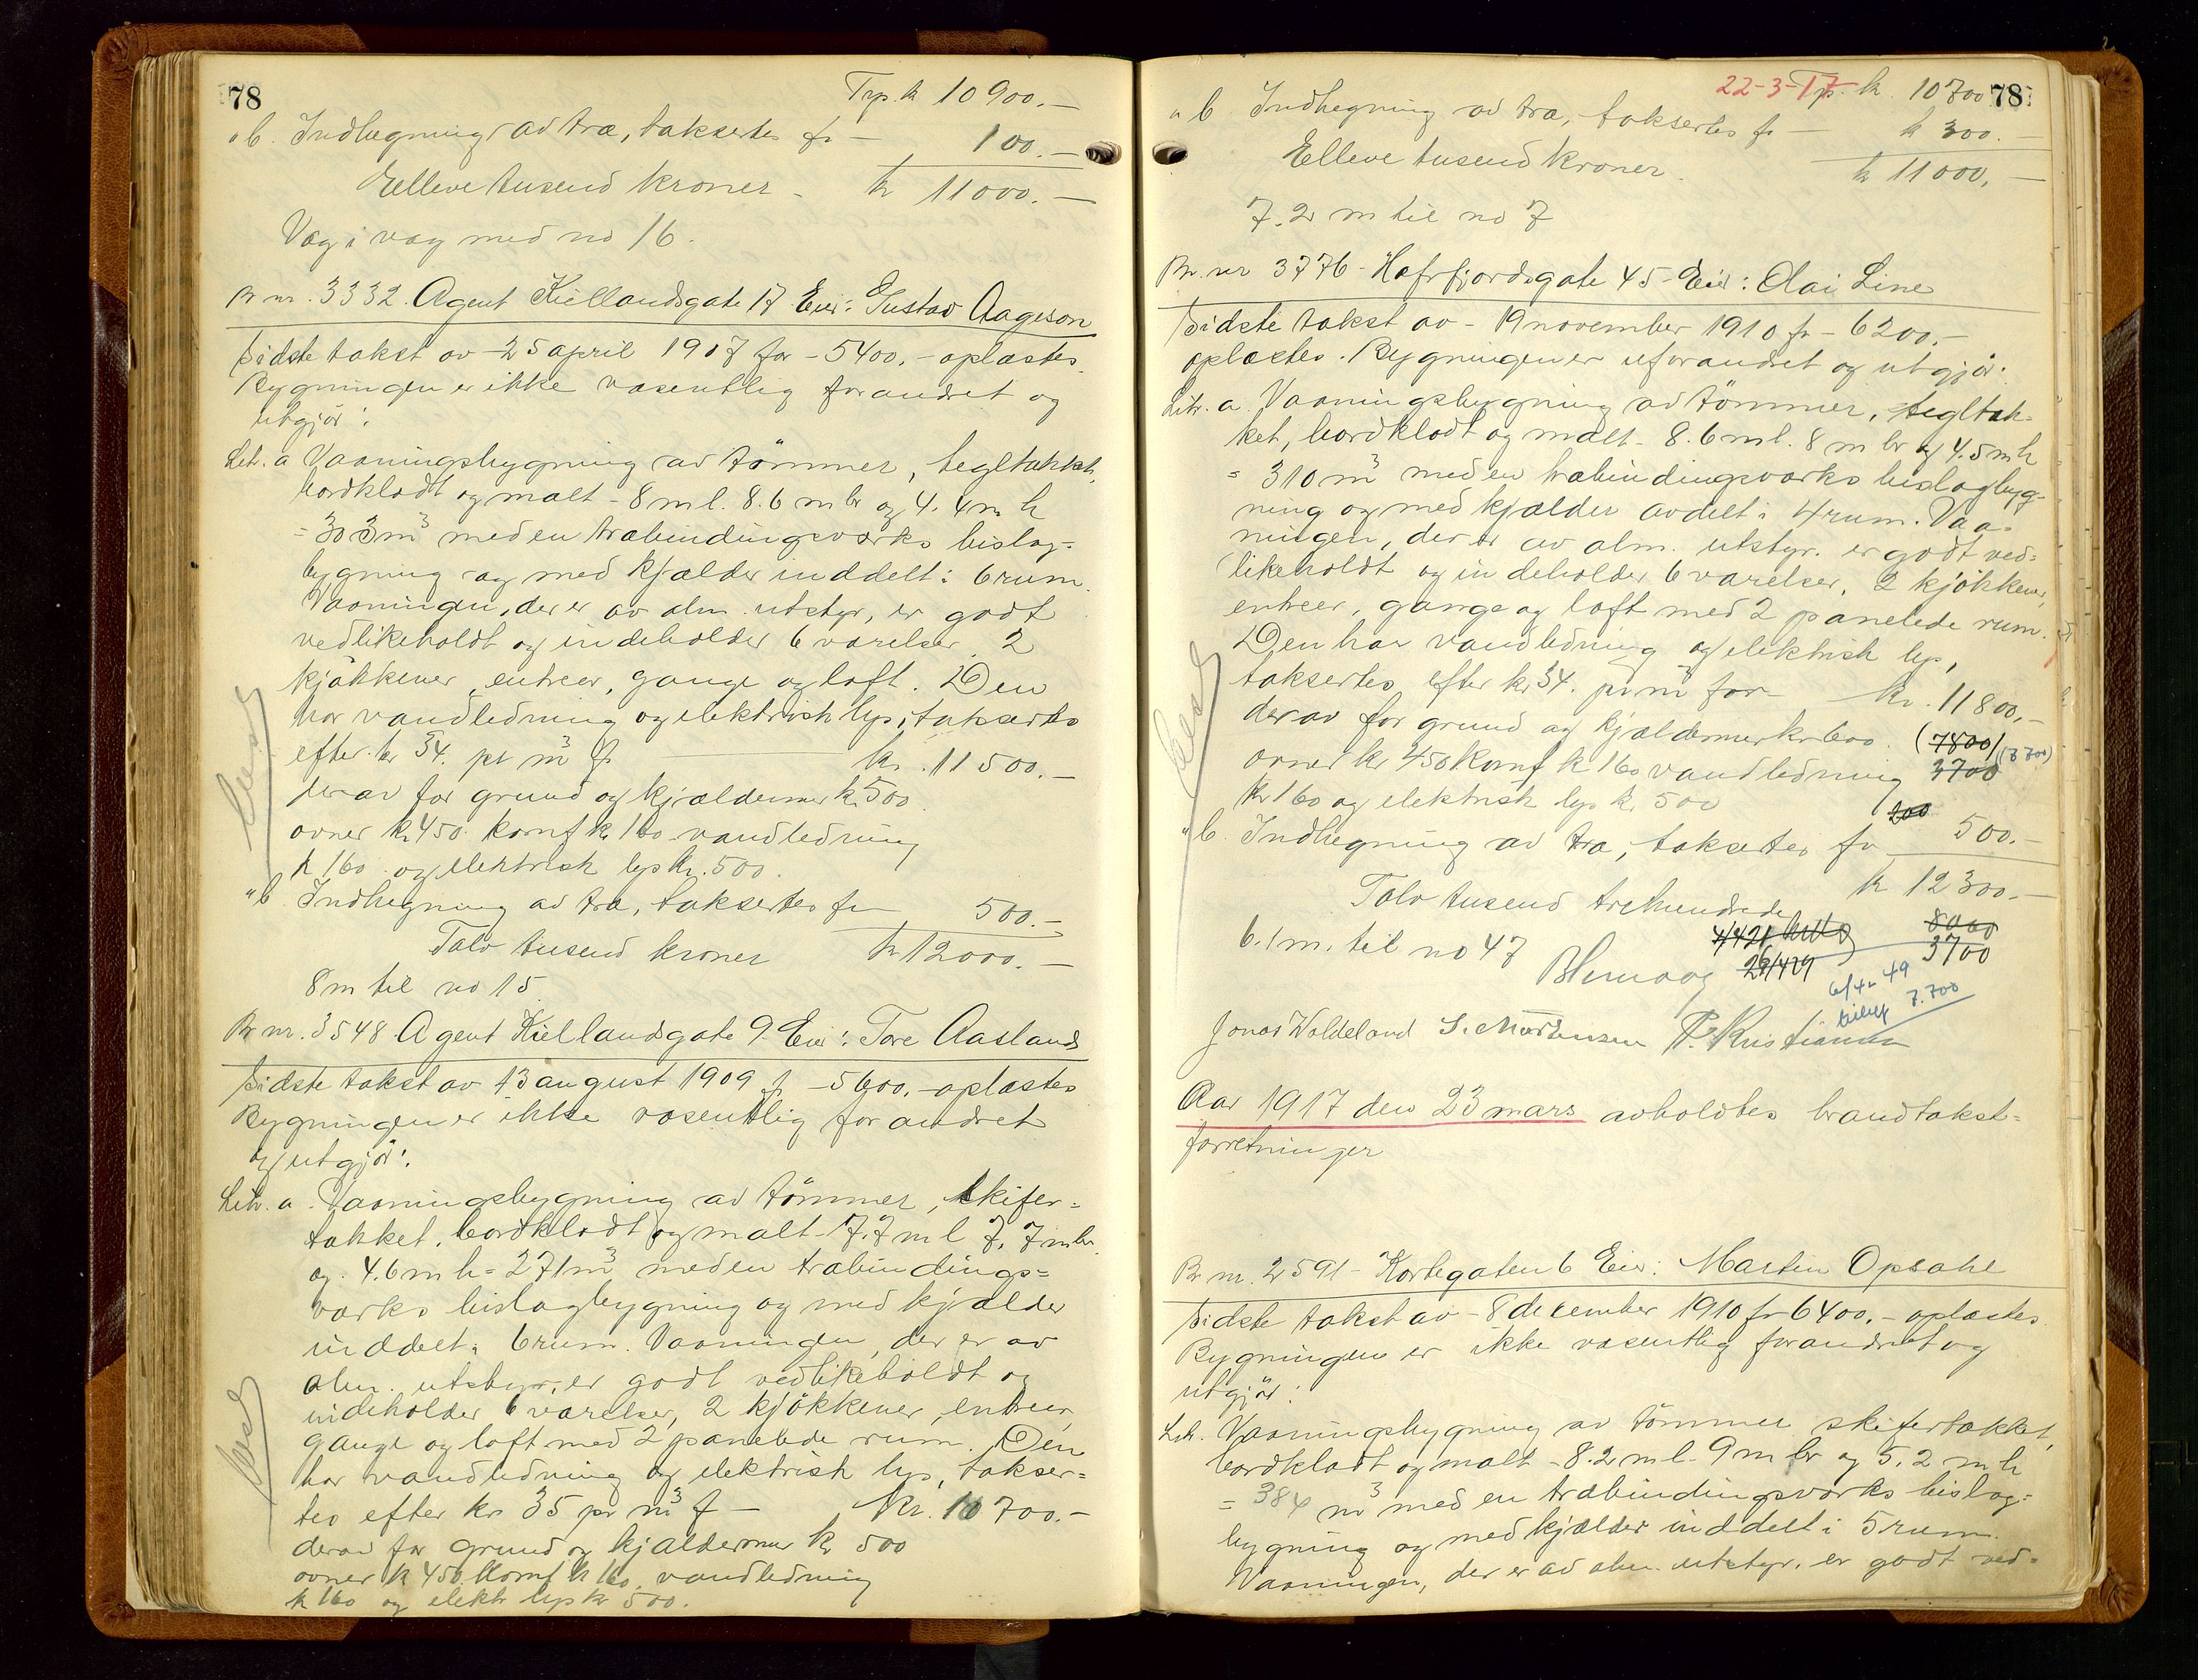 78
Trp. kr 10900.-
" b. Indhegning av træ, takseres for - 100.-
Elleve tusend kroner - kr 11000.-
Væg i væg med no 16.
Br nr. 3332. Agent Kiellandsgate 17 Eier: Gustav Aageson
Sidste takst av - 25 april 1907 for - 5400.- oplæstes.
Bygningen er ikke væsentlig forandret og
utgjør:
Litr. a Vaaningsbygning av tømmer, tegltækket,
bordklædt og malt - 8 m l. 8.6 m br og 4.4 m h
= 303 m³ med en træbindingsverks bislag-
bygning og med kjælder inddelt i 6 rum.
Vaaningen, der er av alm. utstyr, er godt
vedlikeholdt og indeholder 6 værelser, 2
kjøkkener, entreer, gange og loft. Den
har vandledning og elektrisk lys, takseres
efter kr 34. pr m³ fr kr. 11500.-
derav for grund og kjældermur kr 500
ovner kr 450. komf kr 160 vandledning
kr 160 og elektrisk lys kr. 500.
" b Indhegning av træ, takseres for 500.-
Tolv tusend kroner kr 12000.-
8 m til no 15
Br nr. 3548. Agent Kiellandsgate 9. Eier: Tore Aasland
Sidste takst av 13 august 1909 f - 5600.- oplæstes
Bygningen er ikke væsentlig forandret
og utgjør:
Litr. a. Vaaningsbygning av tømmer, skifer=
tækket, bordklædt og malt - 7.7 m l 7.7 m br.
og 4.6 m h = 271 m³ med en træbindings=
verks bislagbygning og med kjælder
inddelt i 6 rum. Vaaningen, der er av
alm. utstyr, er godt vedlikeholdt og
indeholder 6 værelser, 2 kjøkkener, entreer,
gange og loft med 2 panelede rum. Den
har vandledning og elektrisk lys, takser=
tes efter kr 35 pr m³ f - Kr. 10700.-
derav for grund og kjældermur kr 500
ovner kr 450. Komf kr 160, vandledning
kr 160 og elektr lys kr 500.
22-3-17 Trp. kr. 10700 78
" b Indhegning av træ, takseres fr - kr 300.-
Elleve tusend kroner. kr 11000.-
7.2 m til no 7
Br. nr 3776 - Hafrfjordsgate 45 - Eier: Olai Line
Sidste takst av - 19 november 1910 fr - 6200.-
oplæstes. Bygningen er uforandret og utgjør:
Litr. a. Vaaningsbygning av tømmer, tegltæk-
ket, bordklædt og malt - 8.6 m l. 8 m br og 4.5 m h
= 310 m³ med en træbindingsverks bislagbyg-
ning og med kjælder avdelt i 4 rum. Vaa=
ningen, der er av alm. utstyr. er godt ved=
likeholdt og indeholder 6 værelser, 2 kjøkkener,
entreer, gange og loft med 2 panelede rum.
Den har vandledning og elektrisk lys,
takseres efter kr 34. pr m³ for kr. 11800.-
derav for grund og kjældermur kr 600. (7800) (7700)
ovner kr 450 Komf kr 160 vandledning 3700
kr 160 og elektrisk lys kr. 500
200
" b. Indhegning av træ, takseres fr 500.-
Tolv tusend trehundrede kr 12300.-
6.1 m. til no 47 8000
3700
29/429
6/4- 49
7.700
Jonas Voldeland S. Mortensen P. Kristiansen
Aar 1917 den 23 mars avholdtes brandtakst=
forretninger
Br nr. 2591 - Kortegaten 6 Eier: Martin Opsahl
Sidste takst av - 8 december 1910 fr 6400.- oplæstes.
Bygningen er ikke væsentlig forandret og
utgjør:
Litr. Vaaningsbygning av tømmer skifertækket,
bordklædt og malt - 8.2 m l - 9 m br og 5.2 m h
= 384 m³ med en træbindingsverks bislag=
bygning og med kjælder inddelt i 5 rum.
Vaaningen, der er av alm. utstyr, er godt ved=